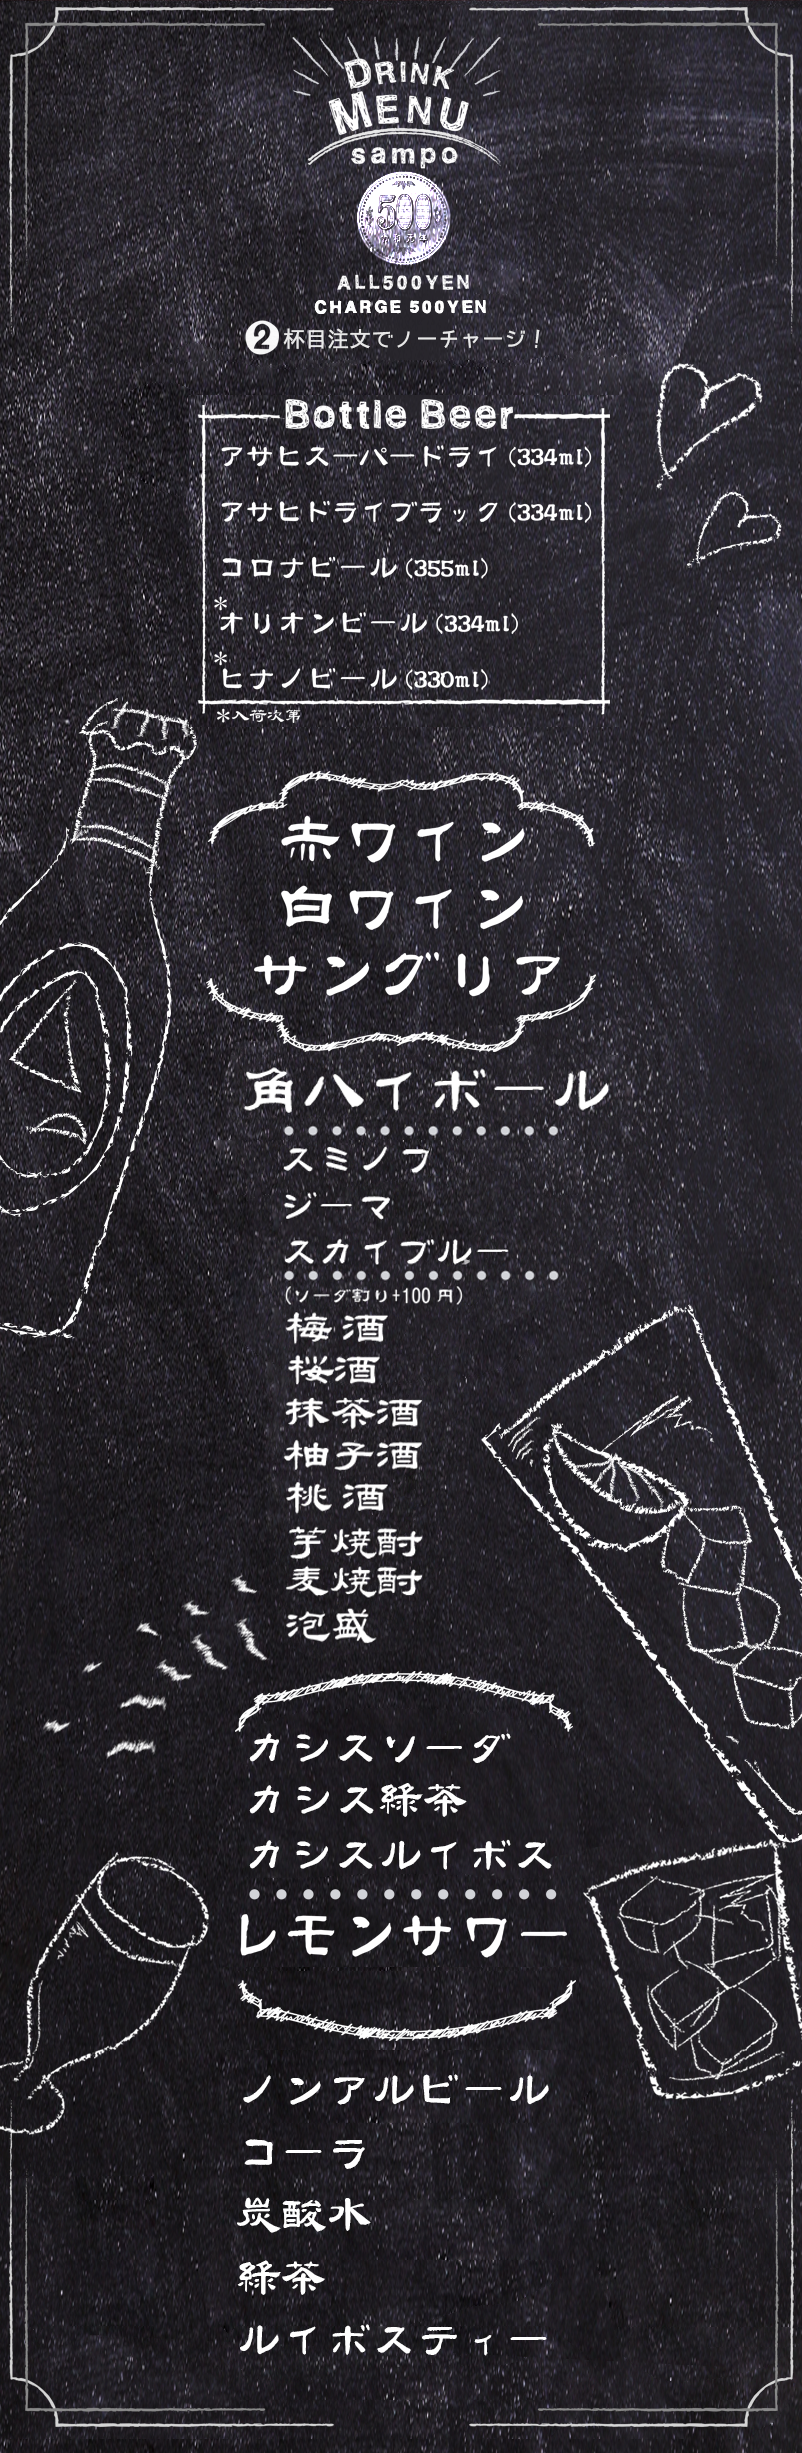 DRINK
MENU
sampo
500
ALL500YEN
CHARGE 500YEN
2杯目注文でノーチャージ！
Bottle Beer
アサヒスーパードライ(334ml)
アサヒドライブラック(334ml)
コロナビール(355ml)
*オリオンビール(334ml)
*ヒナノビール(330ml)
*入荷次第
赤ワイン
白ワイン
サングリア
角ハイボール
スミノフ
ジーマ
スカイブルー
(ソーダ割り+100 円)
梅酒
桜酒
抹茶酒
柚子酒
桃酒
芋焼酎
麦焼酎
泡盛
カシスソーダ
カシス緑茶
カシスルイボス
レモンサワー
ノンアルビール
コーラ
炭酸水
緑茶
ルイボスティー